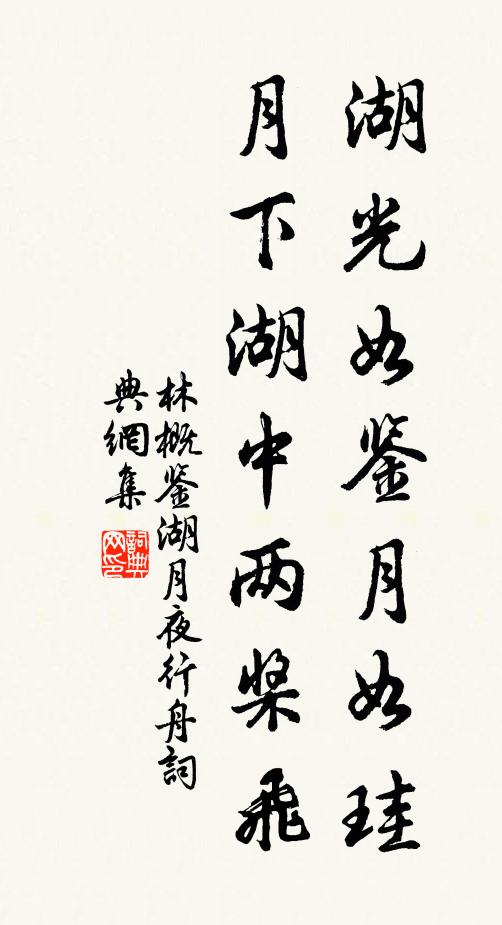 湖光如鉴月如珪
月下湖中两桨飛
林概鉴湖月夜行舟詞
典網集
詞典网印